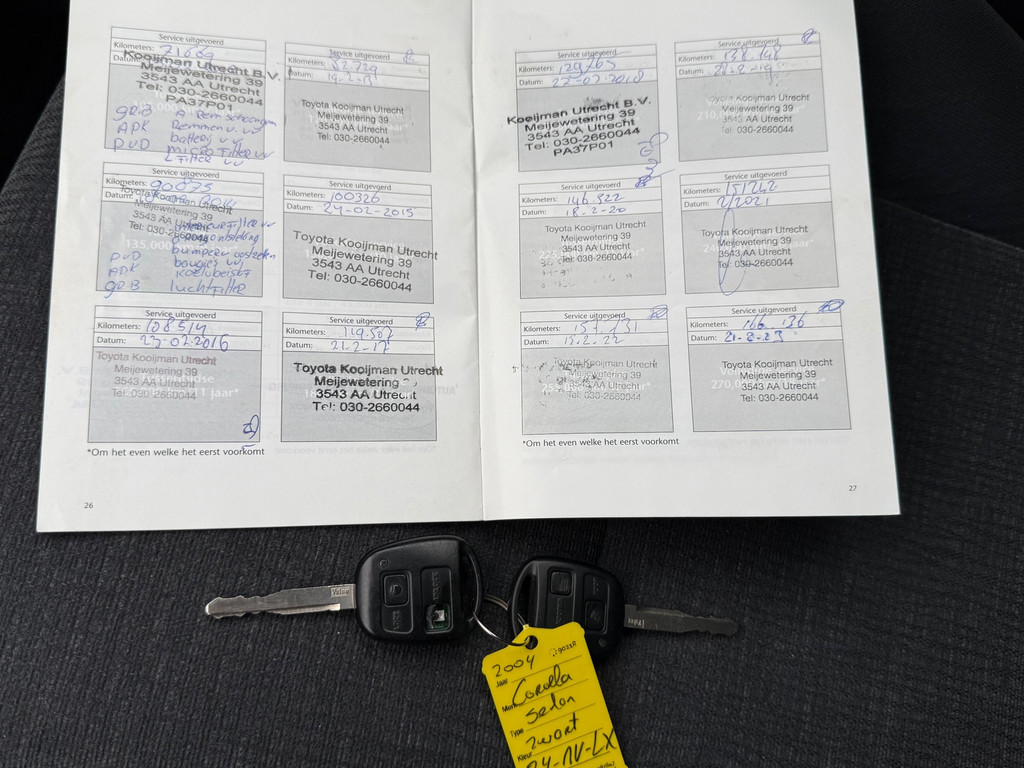 Service uitgevoerd
Kilometers: 71669
Datum:
Kooijman Utrecht B.V.
Meijewetering 39
3543 AA Utrecht
Tel: 030-2660044
PA37P01
GRB
APK Remmen
DVD batterij vv
microfilter vv
Service uitgevoerd
Kilometers: 82729
Datum:
Toyota Kooijman Utrecht
Meijewetering 39
3543 AA Utrecht
Tel: 030-2660044
Service uitgevoerd
Kilometers: 90075
Datum:
Toyota Kooijman Utrecht
Meijewetering 39
3543 AA Utrecht
Tel: 030-2660044
135,000
DVD bougies vv
APK
GRB luchtfilter
Service uitgevoerd
Kilometers: 100326
Datum: 24-02-2015
Toyota Kooijman Utrecht
Meijewetering 39
3543 AA Utrecht
Tel: 030-2660044
Service uitgevoerd
Kilometers: 108514
Datum: 23-02-2016
Toyota Kooijman Utrecht
Meijewetering 39
3543 AA Utrecht
Tel: 030-2660044
Service uitgevoerd
Kilometers: 119.587
Datum: 21-2-17
Toyota Kooijman Utrecht
Meijewetering
3543 AA Utrecht
Tel: 030-2660044
*Om het even welke het eerst voorkomt
26
Service uitgevoerd
Kilometers: 129765
Datum: 22-02-2018
Kooijman Utrecht B.V.
Meijewetering 39
3543 AA Utrecht
Tel: 030-2660044
PA37P01
Service uitgevoerd
Kilometers: 138.148
Datum: 21-2-19
Toyota Kooijman Utrecht
Meijewetering 39
3543 AA Utrecht
Tel: 030-2660044
Service uitgevoerd
Kilometers: 146.522
Datum: 18-2-20
Toyota Kooijman Utrecht
Meijewetering 39
3543 AA Utrecht
Tel: 030-2660044
Service uitgevoerd
Kilometers: 151242
Datum: 2/2021
Toyota Kooijman Utrecht
Meijewetering 39
3543 AA Utrecht
Tel: 030-2660044
Service uitgevoerd
Kilometers: 157.131
Datum: 15.2.22
Toyota Kooijman Utrecht
Meijewetering 39
3543 AA Utrecht
Tel: 030-2660044
Service uitgevoerd
Kilometers: 166.136
Datum: 21-2-23
Toyota Kooijman Utrecht
Meijewetering 39
3543 AA Utrecht
Tel: 030-2660044
270,000
*Om het even welke het eerst voorkomt
27
Valeo
Jaar 2004
Merk Corolla
Type Sedan
Kleur zwart